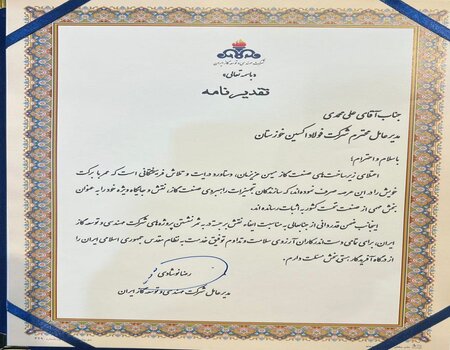 شرکت مهندسی و توسعه گاز ایران
«باسمه تعالی»
تقدیرنامه
جناب آقای علی محمدی
مدیرعامل محترم شرکت فولاد اکسین خوزستان
با سلام و احترام؛
اعتلای زیرساخت‌های صنعت گاز میهن عزیزمان، دستاورد درایت و تلاش فرهیختگانی است که عمر با برکت
خویش را در این عرصه صرف نموده‌اند که سازندگان تجهیزات راهبردی صنعت گاز، نقش و جایگاه ویژه خود را به عنوان
بخش مهمی از صنعت نفت کشور به اثبات رسانده‌اند.
اینجانب ضمن قدردانی از جنابعالی به مناسبت ایفاء نقش برجسته در به ثمر نشستن پروژه‌های شرکت مهندسی و توسعه گاز
ایران، برای تمامی دست‌اندرکاران آرزوی سلامت و تداوم توفیق خدمت به نظام مقدس جمهوری اسلامی ایران را
از درگاه آفریدگار هستی بخش مسئلت دارم.
رضا نوشادی
مدیرعامل شرکت مهندسی و توسعه گاز ایران